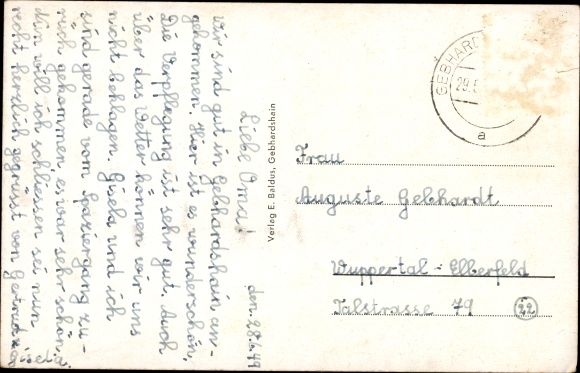 den. 28.6.49
Liebe Oma!
Wir sind gut in Gebhardshain an-
gekommen. Hier ist es wunderschön,
Die Verpflegung ist sehr gut. Auch
über das Wetter können wir uns
nicht beklagen. Gisela und ich
sind gerade vom Spaziergang zu-
rück gekommen, es war sehr schön.
Nun will ich schliessen sei nun
recht herzlich gegrüsst von
Gisela.
Verlag E. Baldus, Gebhardshain
GEBHARD
29.
a
Frau
Auguste Gebhardt
Wuppertal-Elberfeld
Talstrasse 79
22